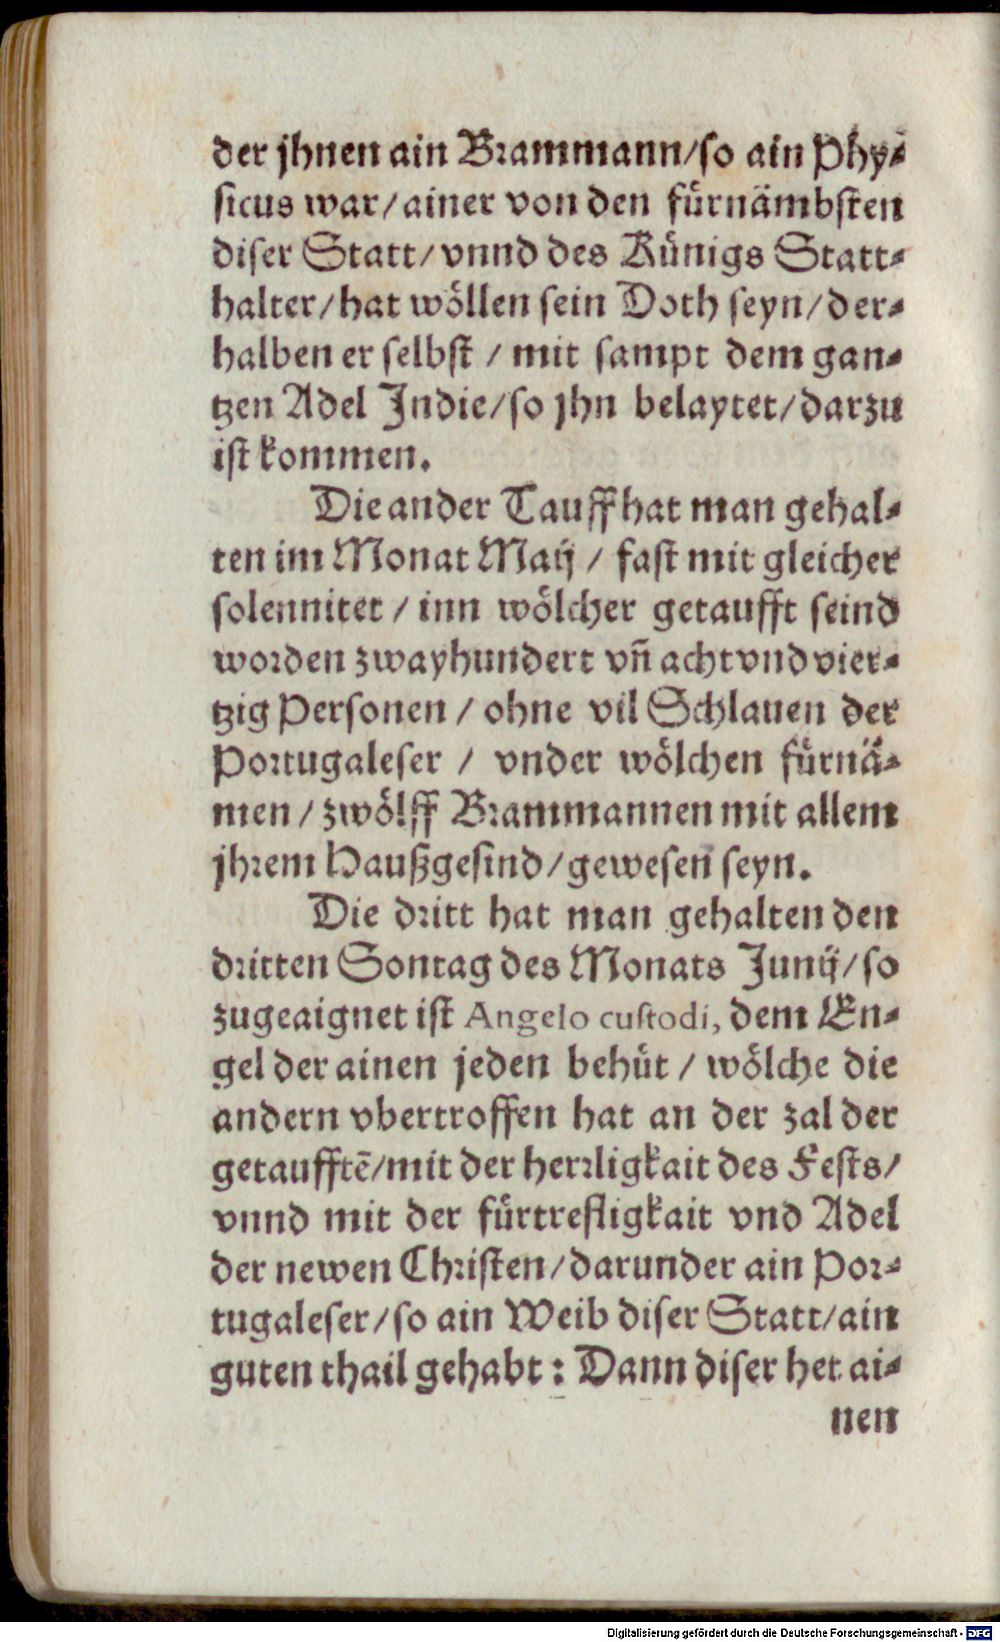 der jhnen ain Brammann/so ain Phy-
sicus war/ainer von den fürnämbsten
diser Statt/vnnd des Künigs Statt-
halter/hat wöllen sein Doth seyn/der-
halben er selbst / mit sampt dem gan-
tzen Adel Indie/so jhn belaytet/darzu
ist kommen.
Die ander Tauff hat man gehal-
ten im Monat Maij / fast mit gleicher
solennitet / inn wölcher getaufft seind
worden zwayhundert vñ acht vnd vier-
tzig Personen / ohne vil Schlauen der
Portugaleser / vnder wölchen fürnä-
men / zwölff Brammannen mit allem
jhrem Haußgesind/gewesen seyn.
Die dritt hat man gehalten den
dritten Sontag des Monats Junij/so
zugeaignet ist Angelo custodi, dem En-
gel der ainen jeden behüt / wölche die
andern vbertroffen hat an der zal der
getaufftē/mit der herrligkait des Fests/
vnnd mit der fürtrefligkait vnd Adel
der newen Christen/darunder ain Por-
tugaleser/so ain Weib diser Statt/ain
guten thail gehabt: Dann diser het ai-
nen
Digitalisierung gefördert durch die Deutsche Forschungsgemeinschaft - DFG